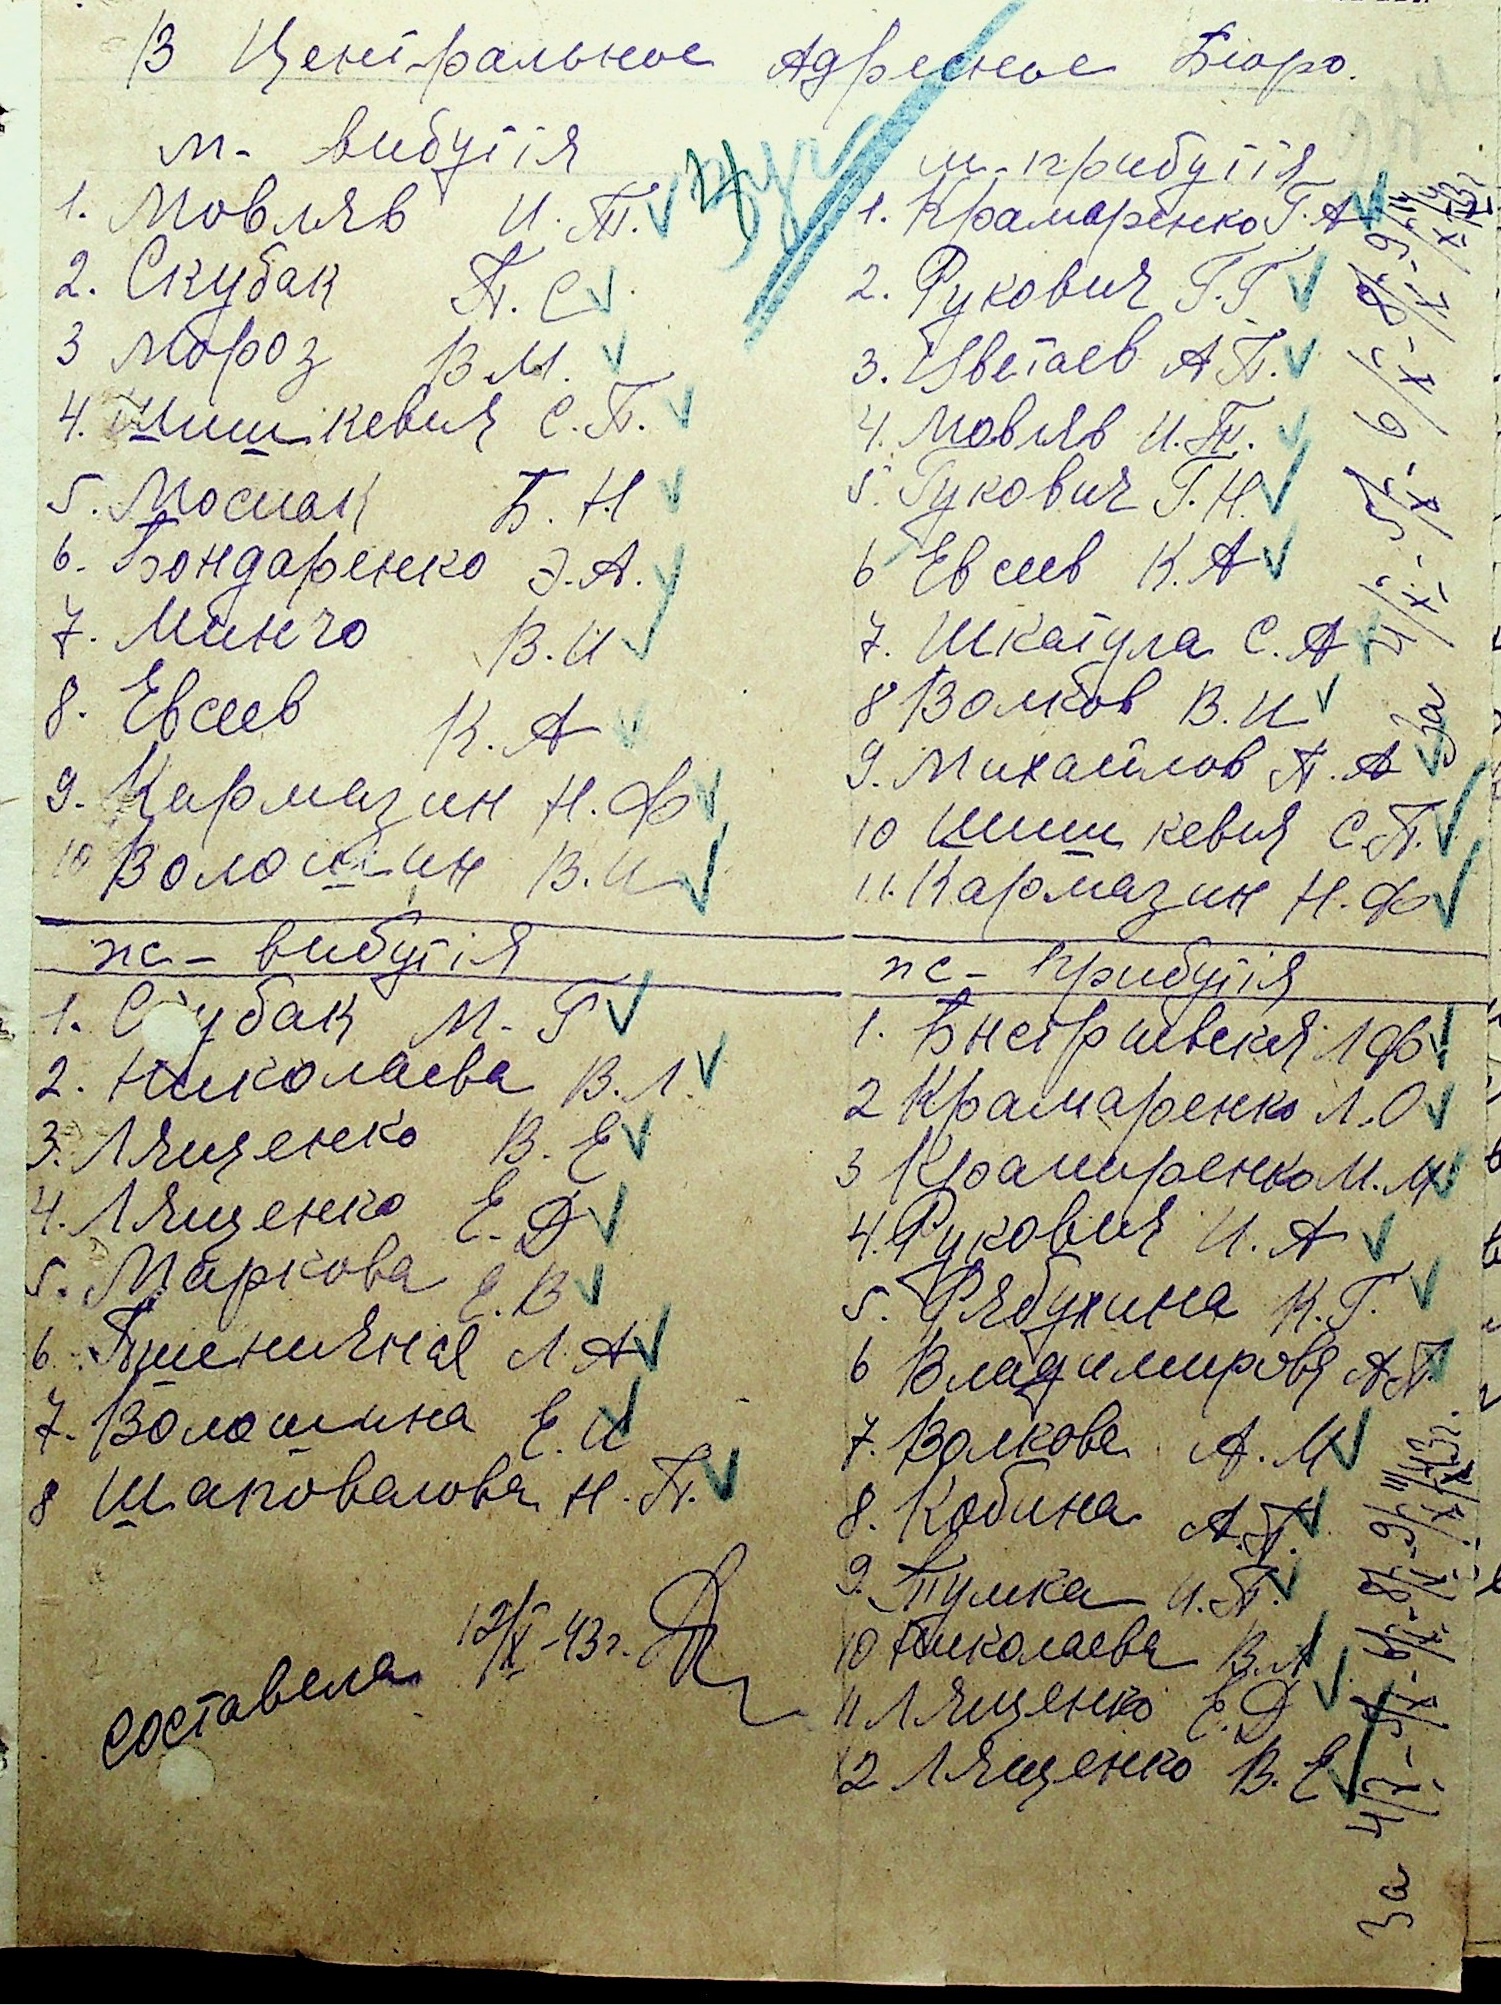 В Центральное Адресное Бюро.
м- вибуття
1. Мовляв И. П.
2. Скубак П. С
3 Мороз В М.
4. Шишкевич С. П.
5. Мосиак Б. Н
6. Бондаренко Э. А.
7. Минчо В. И
8. Евсеев К. А
9. Кармазин Н. Ф
10 Волошин В. И
ж- вибуття
1. Скубак М- Г
2. Николаева В. Л.
3. Лященко В. Е
4. Лященко Е. Д
5. Маркова Е. В
6. Пшеничная Л. А
7. Волошина Е. И
8 Шаповалова Н. П.
составела 12/X-43г.
м- прибуття
1. Крамаренко Г. А
2. Рукович Г. Г
3. Цветаев А П.
4. Мовляв И. П.
5. Рукович Г. Н.
6 Евсеев К. А
7. Шкатула С. А
8 Волков В. И
9. Михайлов П. А
10 Шишкевич С. П.
11. Кармазин Н. Ф
ж- прибуття
1. Л Ф
2 Крамаренко Л. О
3 Крамаренко М. М
4. Рукович И. А
5. Рябухина К. Г.
6 Владимирова А П.
7. Волкова А. М
8. Кобина А. П.
9. Пумка И. П.
10 Николаева В. Л
11 Лященко Е. Д
12 Лященко В. Е
За 4/X- 5/X- 6/X- 8/X- 9/X
За 4/X- 5/X- 6/X- 8/X- 9/X